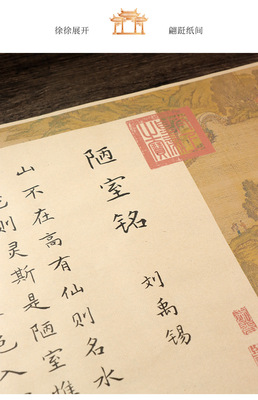 徐徐展开
翩跹纸间
陋室铭
刘禹锡
山不在高有仙则名水
则灵斯是陋室惟
色入